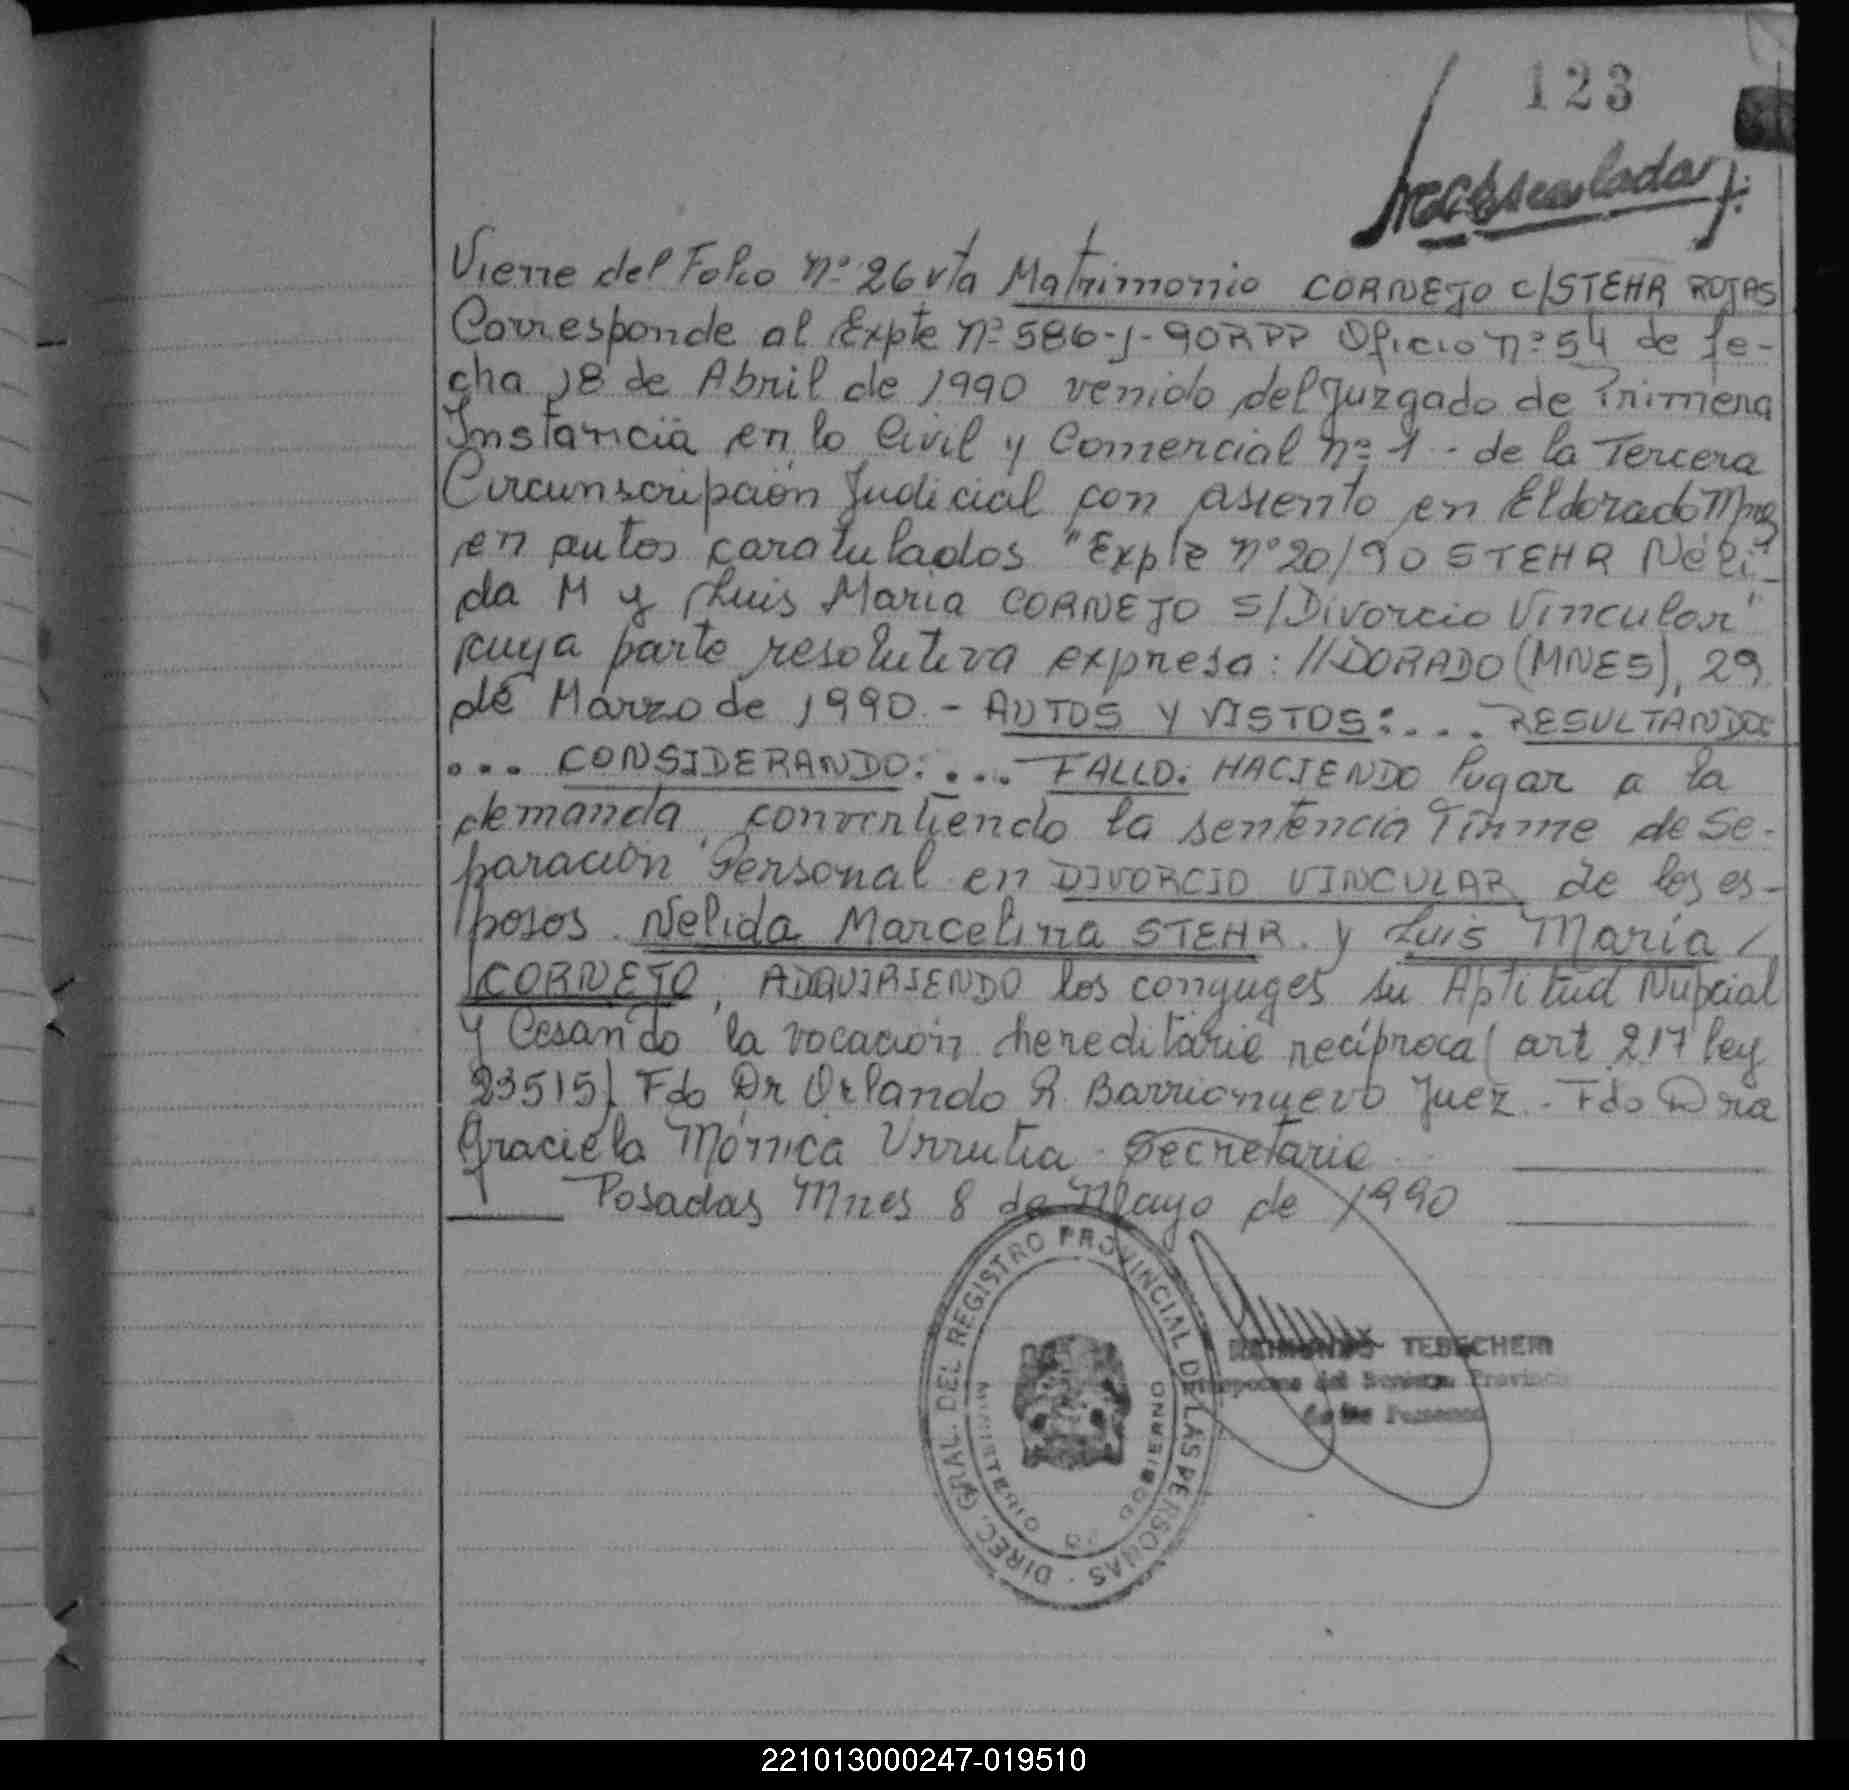 123
Viene del Folio nº 26 vta Matrimonio CORNEJO c/STEHR ROJAS
Corresponde al Expte nº 586-J-90RPP Oficio nº 54 de fe-
cha 18 de Abril de 1990 venido del Juzgado de Primera
Instancia en lo Civil y Comercial nº 1 - de la Tercera
Circunscripción Judicial con asiento en Eldorado Mnes
en autos caratulados "Expte nº 20/90 STEHR Néli-
da M y Luis Maria CORNEJO S/Divorcio Vincular"
cuya parte resolutiva expresa: //DORADO (MNES), 29
de Marzo de 1990.- AUTOS Y VISTOS:.... RESULTANDO:
... CONSIDERANDO:.... FALLO: HACIENDO lugar a la
demanda, convirtiendo la sentencia Firme de Se-
paración Personal en DIVORCIO VINCULAR de los es-
posos. Nelida Marcelina STEHR. y Luis María /
CORNEJO, ADQUIRIENDO los conyuges su Aptitud Nupcial
y Cesando la vocación hereditaria recíproca (art 217 ley
23515). Fdo Dr Orlando R. Barrionuevo Juez.- Fdo Dra
Graciela Mónica Urrutia - Secretaria
Posadas Mnes 8 de Mayo de 1990
DIREC. GRAL. DEL REGISTRO PROVINCIAL DE LAS PERSONAS
MINISTERIO DE GOBIERNO
TEBECHERI
de las Personas
221013000247-019510